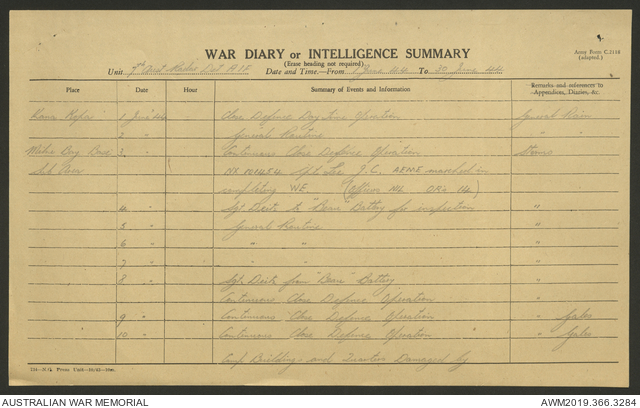 Army Form C.2118
(adapted.)
WAR DIARY or INTELLIGENCE SUMMARY
(Erase heading not required)
Unit Aust Radar Det AIF Date and Time—From 1 June 44 To 30 June 44
Place Date Hour Summary of Events and Information Remarks and references to Appendices, Diaries, &c.
1 June 44 Close Defence Day time Operation
2 " General Routine " "
Milne Bay Base 3 " Continuous Close Defence Operation
Sub Area NX 101454 J.C. AEME marched in
completing WE. (Officers ORs 14)
4 " Sgt to "Bear" Battery for inspection "
5 " General Routine "
6 " " " "
7 " "
8 " Sgt from "Bear" Battery "
Continuous Close Defence Operation
9 " Continuous Close Defence Operation " Gales
10 " Continuous Close Defence Operation " Gales
Camp Buildings and Quarters Damaged by
AUSTRALIAN WAR MEMORIAL
AWM2019.366.3284